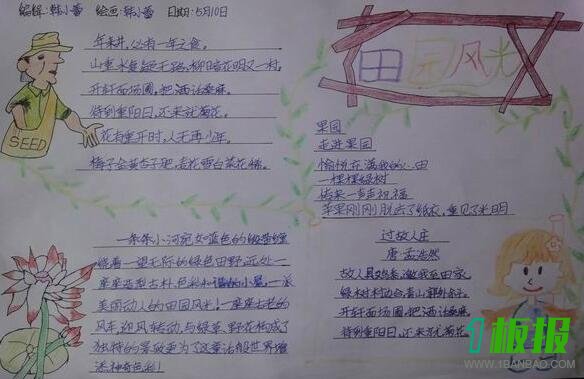 编辑:韩小蕾 绘画:韩小蕾 日期:5月10日
田园风光
SEED
年来井,必有一年之食。
山重水复疑无路,柳暗花明又一村。
开轩面场圃,把酒话桑麻。
待到重阳日,还来就菊花。
花有重开时,人无再少年。
梅子金黄杏子肥,麦花雪白菜花稀。
果园
走进果园
愉悦在满我的心田
一棵棵绿树
传来一声声祝福
苹果刚刚脱去了纸衣,重见了光明
一条条小河宛如蓝色的缎带缠
绕着一望无际的绿色田野,远处一
座座造型古朴,色彩和谐的小屋,一派
美丽动人的田园风光!一座座古老的
风车迎风转动,与绿草、野花构成了
独特的景致更为了这童话般世界增
添神奇色彩!
过故人庄
唐·孟浩然
故人具鸡黍,邀我至田家。
绿树村边合,青山郭外斜。
开轩面场圃,把酒话桑麻。
待到重阳日,还来就菊花。
1板报
WWW.1BANBAO.COM